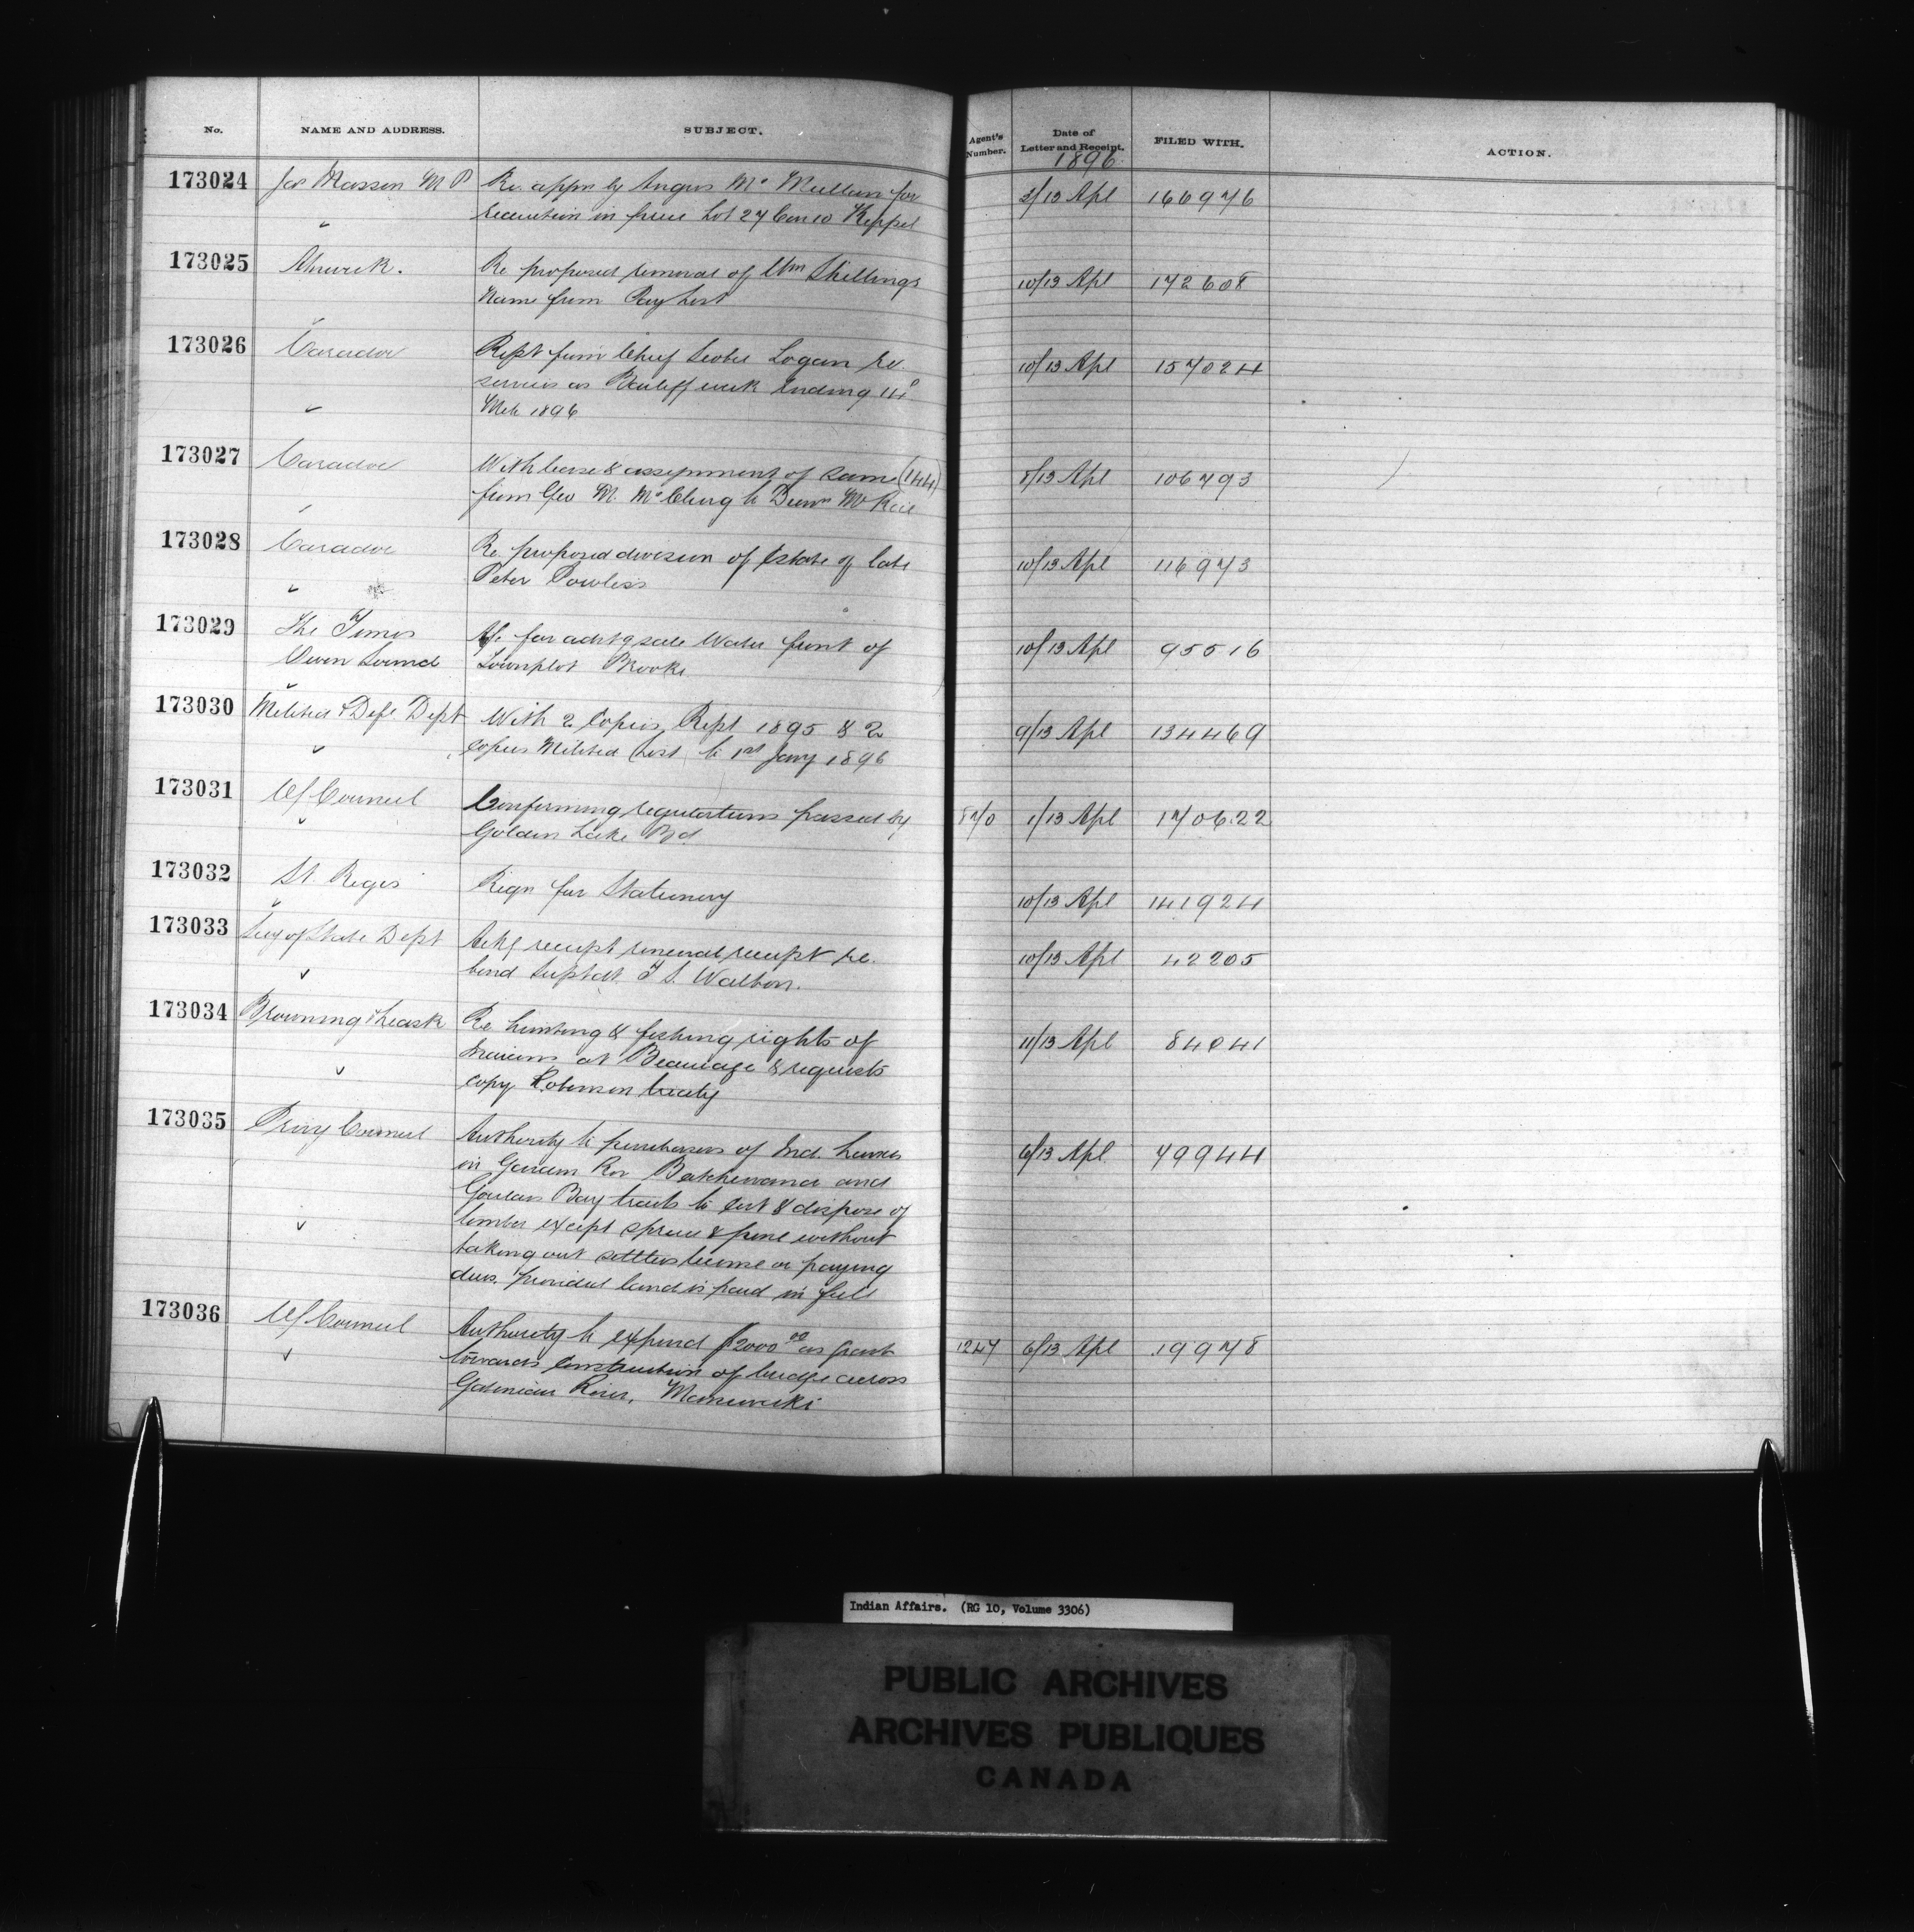 No. NAME AND ADDRESS. SUBJECT. Agent's Number. Date of Letter and Receipt. FILED WITH. ACTION.
1896
173024 Jas Masson M P Re appn by Angus Mc Mullen for 2/13 Apl 166976
reduction in price Lot 27 Con 10 Keppel
173025 Alnwick. Re proposed removal of Wm Shillings 10/13 Apl 172608
Name from Pay List
173026 Caradoc Rept from Chief Logan re 10/13 Apl 157024
services as Bailiff week ending 14
Mch 1896
173027 Caradoc With lease & assignment of same (144) 8/13 Apl 106793
from Geo M. McClurg to
173028 Caradoc Re proposed division of Estate of late 10/13 Apl 116973
Peter Powless
173029 The Times 10/13 Apl 95516
Owen Sound for advtg sale Water front of
Townplot Brooke
173030 Militia & Defe Dept With 2 Copies Rept 1895 & 2 9/13 Apl 134469
copies Militia List to 1st Jany 1896
173031 Of Council Confirming regulations passed by 870 1/13 Apl 170622
Golden Lake Bd
173032 St. Regis Reqn for Stationery 10/13 Apl 141924
173033 Secy of State Dept Ackg receipt renewal receipt re 10/13 Apl 42205
bond Suptdt T S. Walton.
173034 Browning & Leask Re hunting & fishing rights of 11/13 Apl 84041
Indians at Beaucage & requests
copy Robinson treaty
173035 Privy Council Authority to purchasers of Ind. lands 6/13 Apl. 79944
in Garden Rvr Batchewana and
Goulais Bay tracts to cut & dispose of
timber except spruce & pine without
taking out settlers license or paying
dues. provided land is paid in full
173036 Of Council Authority to expend $2000.00 as grant 1247 6/13 Apl 19978
towards construction of bridge across
Gatineau River, Maniwaki
Indian Affairs. (RG 10, Volume 3306)
PUBLIC ARCHIVES
ARCHIVES PUBLIQUES
CANADA